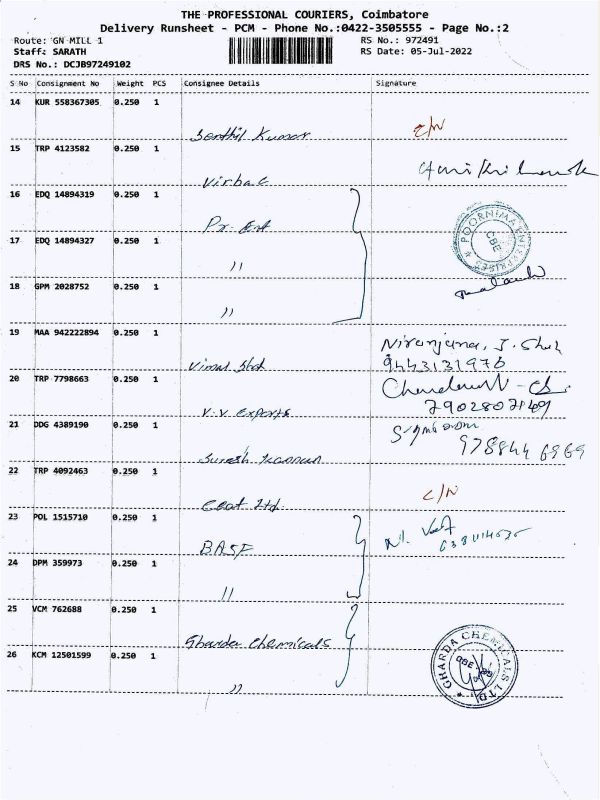 THE PROFESSIONAL COURIERS, Coimbatore
Delivery Runsheet - PCM - Phone No.:0422-3505555 - Page No.:2
Route: GN MILL 1
RS No.: 972491
Staff: SARATH
RS Date: 05-Jul-2022
DRS No.: DCJB97249102
S No Consignment No Weight PCS Consignee Details Signature
14 KUR 558367305 0.250 1
Senthil Kumar
15 TRP 4123582 0.250 1
Virbac
16 EDQ 14894319 0.250 1
Pr. Ent
POORNIMA ENTERPRISES
CBE
17 EDQ 14894327 0.250 1
"
18 GPM 2028752 0.250 1
"
19 MAA 942222894 0.250 1
Vimal Shah Niranjana. J. Shah
9443131976
20 TRP 7798663 0.250 1
V.V Exports
7902807149
21 DDG 4389190 0.250 1
Suresh Kannan
978844 6969
22 TRP 4092463 0.250 1
Ceat Ltd. C/N
23 POL 1515710 0.250 1
BASF
24 DPM 359973 0.250 1
"
25 VCM 762688 0.250 1
Gharda Chemicals
GHARDA CHEMICALS LTD
26 KCM 12501599 0.250 1
"